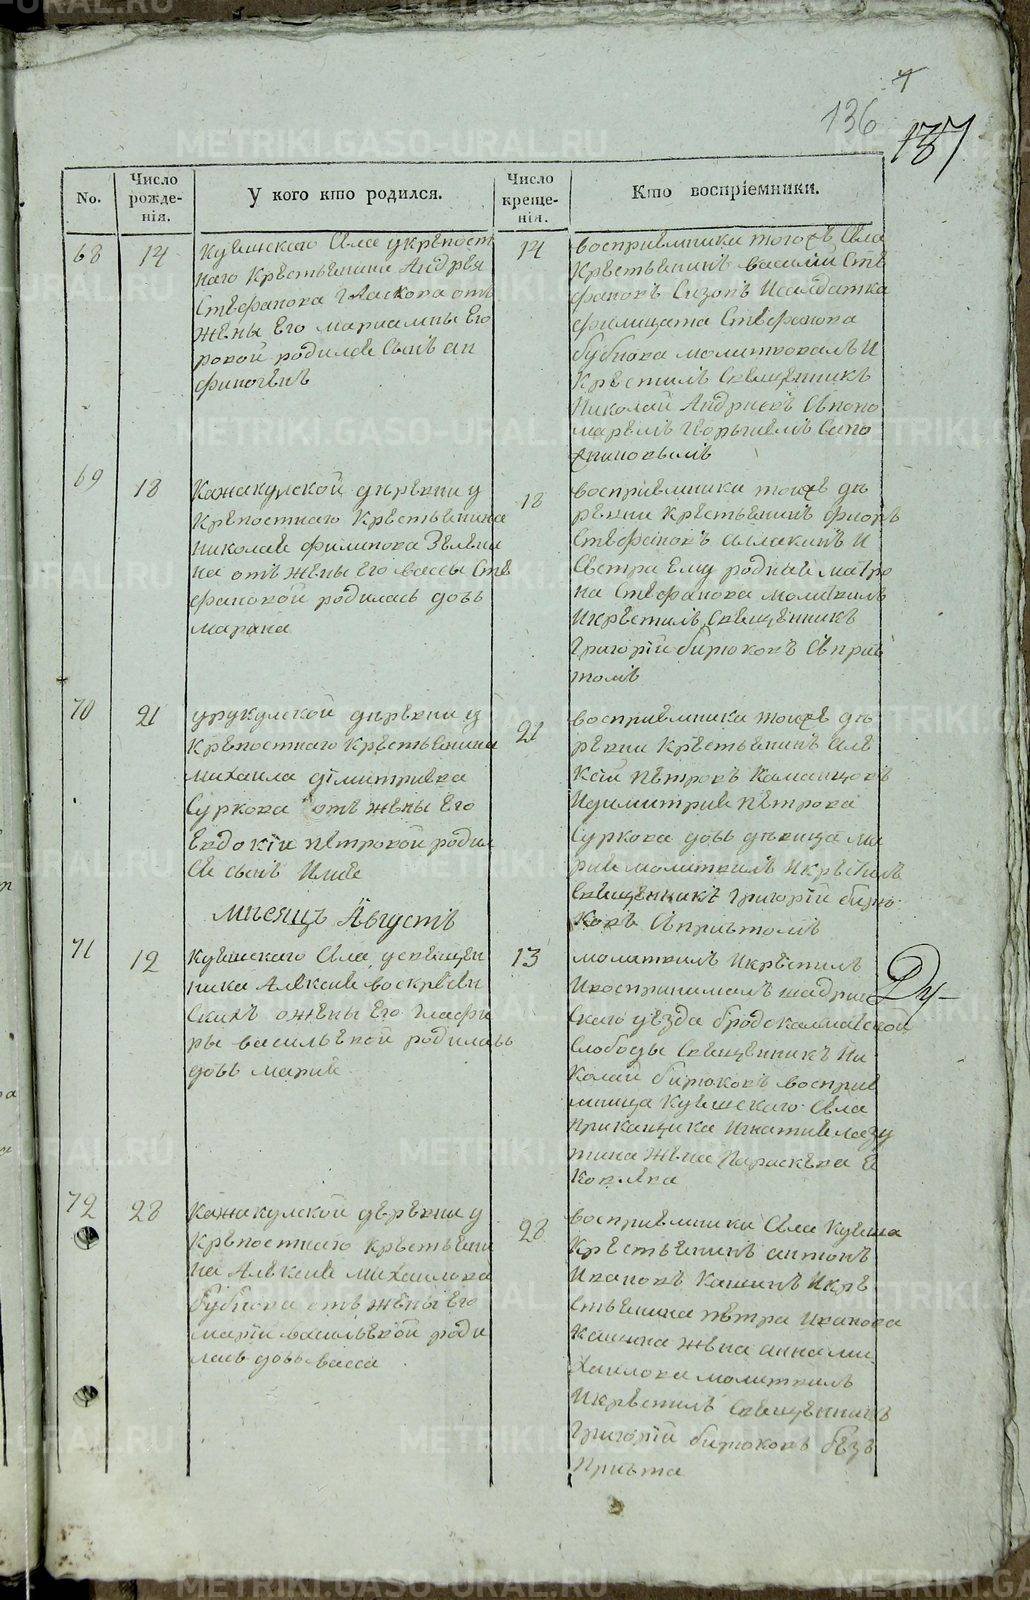 136
137
No.
Число рожде-
нія.
У кого кто родился.
Число креще-
нія.
Кто воспріемники.
68
14
Куяшскаго села у крѣпост
наго крестьянина Андрея
Стефанова Гласкова отъ
жены его мариамны Его
ровой родился сынъ ан
финогенъ
14
восприемники тогожъ села
Крестьянинъ василий Сте
фановъ Сизовъ исалдатка
филицата Стефанова
бубнова молитвовалъ и
Крестилъ священникъ
Николай Андриевъ Спономаремъ
69
18
Кажакулской деревни у
крепостнаго крестьянина
николая филипова Зеляни
на отъ жены его вассы Сте
фановой родилась дочь
марина
18
восприемники тоиже де
ревни крестьянинъ
Стефановъ и
Сестра Ему родная матро
на Стефанова молитвилъ
икрестилъ священникъ
Григорій бирюковъ Спри
томъ
70
21
урукулской деревни у
крепостнаго крестьянина
михаила димитриева
Суркова отъ жены Его
Евдокіи петровой родил
ся сынъ Илия
21
восприемника тоиже де
ревни Крестьянинъ але
ксій петровъ Каманцовъ
идимитрия петрова
Суркова дочь девица ма
рия молитвилъ икрестилъ
священникъ григорій бирю
ковъ Спричтомъ
мнсяцъ Августъ
71
12
куяшскаго села усвящен
ника Алексия воскресен
скихъ ожены его гласфи
ры васильевой родилась
дочь мария
13
молитвилъ икрестилъ
ивоспринималъ шадрин
скаго уезда бродокалмацкой
слободы священникъ ни
колай бирюковъ восприе
мница куяшскаго села
прикащика игнатия лазу
тина жена Параскева
72
28
кажакулской деревни у
крепостнаго крестьяни
на Алексия михаилова
бубнова отъ жены его
маріи васильевой роди
лась дочь васса
28
восприемники села куяша
крестьянинъ антонъ
ивановъ кашинъ икре
стьянина петра иванова
кашина жена анна ми
хаилова молитвилъ
икрестилъ священникъ
григорій бирюковъ безъ
причта